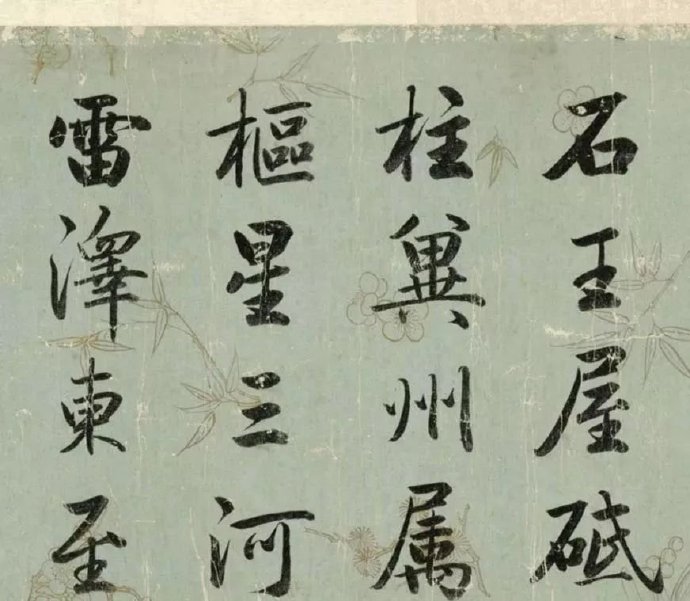 石王屋砥
柱冀州属
樞星三河
雷澤東至